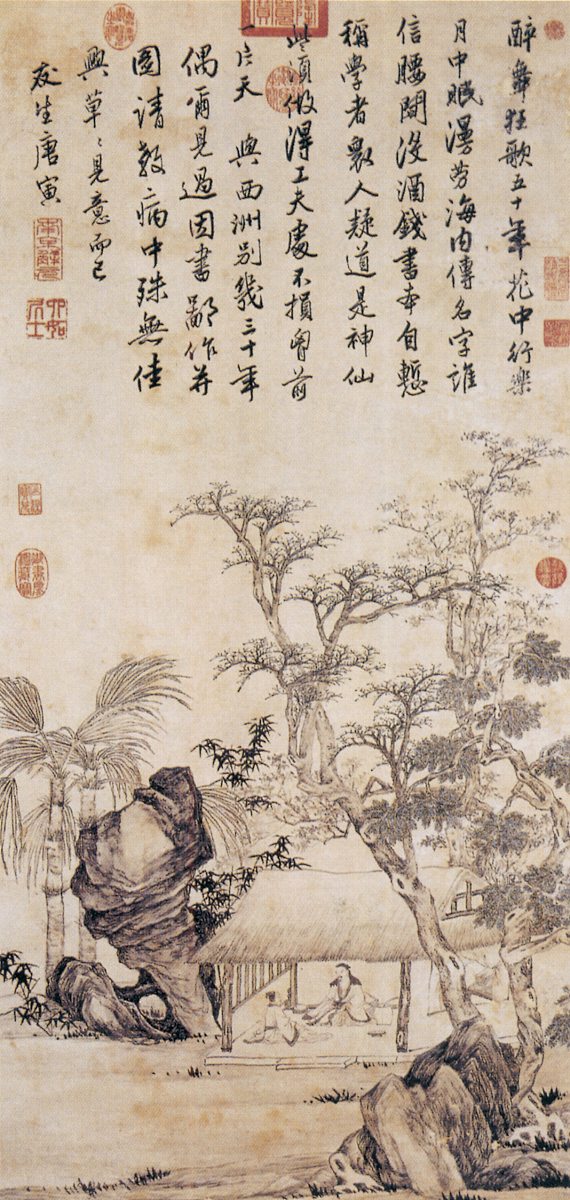 醉舞狂歌五十年花中行樂
月中眠漫勞海內傳名字誰
信腰間沒酒錢書本自慙
稱學者眾人疑道是神仙
些須做得工夫處不損胷前
一片天 與西洲別幾三十年
偶爾見過因書鄙作并
圖請教病中殊無佳
興草〻見意而已
友生唐寅
南京解元
六如居士